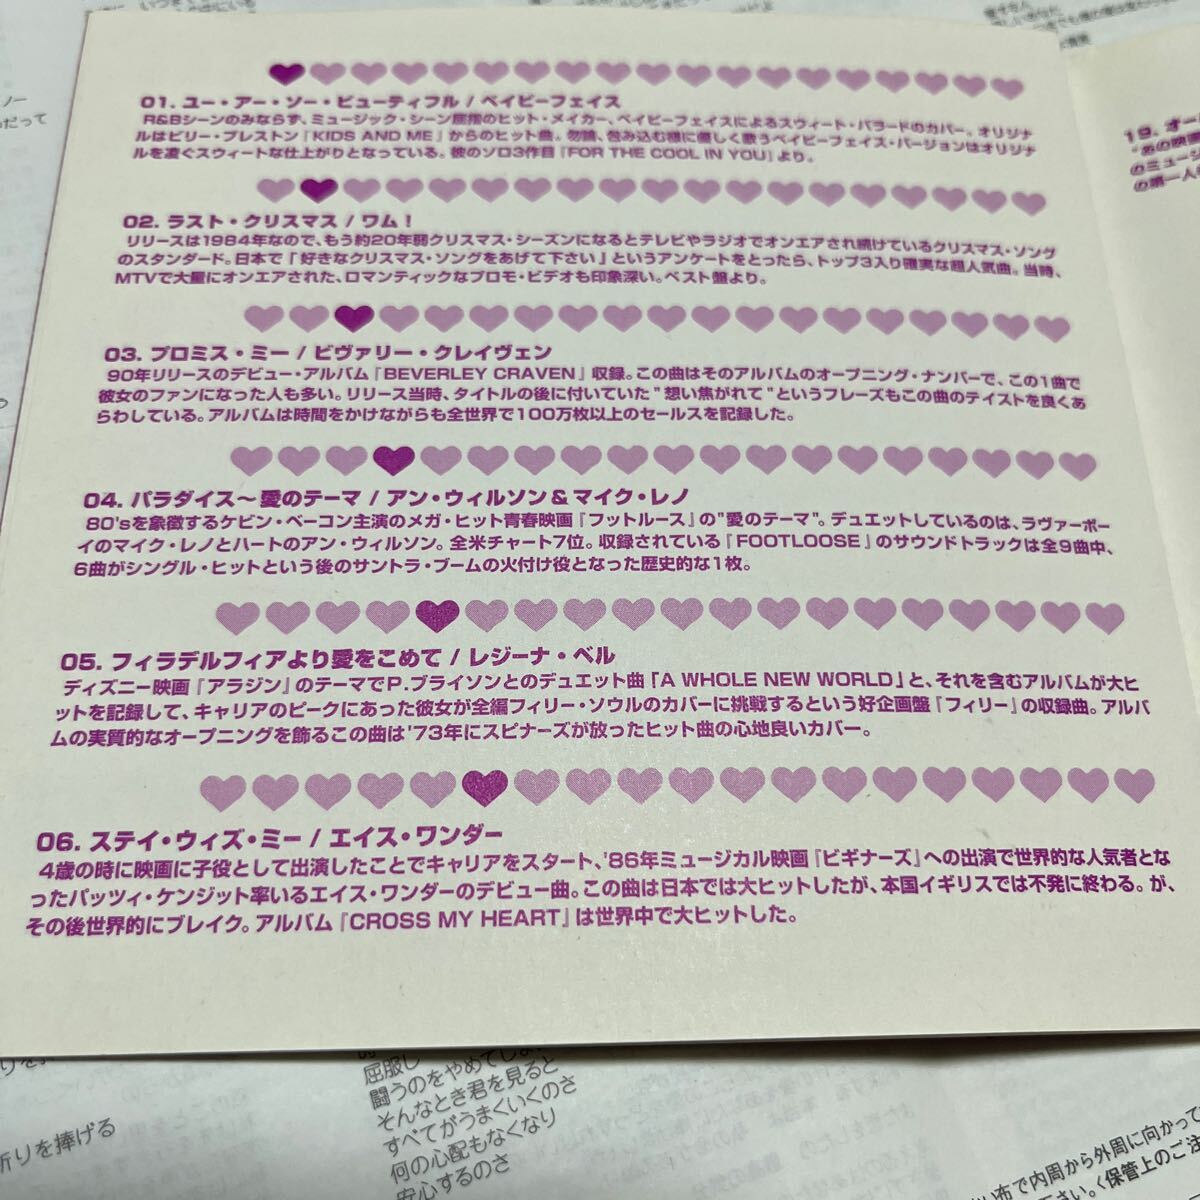 01. ユー・アー・ソー・ビューティフル / ベイビーフェイス
R&Bシーンのみならず、ミュージック・シーン屈指のヒット・メイカー、ベイビーフェイスによるスウィート・バラードのカバー。オリジナ
ルはビリー・プレストン『KIDS AND ME』からのヒット曲。勿論、包み込む様に優しく歌うベイビーフェイス・バージョンはオリジナ
ルを凌ぐスウィートな仕上がりとなっている。彼のソロ3作目『FOR THE COOL IN YOU』より。
02. ラスト・クリスマス / ワム！
リリースは1984年なので、もう約20年弱クリスマス・シーズンになるとテレビやラジオでオンエアされ続けているクリスマス・ソング
のスタンダード。日本で「好きなクリスマス・ソングをあげて下さい」というアンケートをとったら、トップ3入り確実な超人気曲。当時、
MTVで大量にオンエアされた、ロマンティックなプロモ・ビデオも印象深い。ベスト盤より。
03. プロミス・ミー / ビヴァリー・クレイヴェン
90年リリースのデビュー・アルバム『BEVERLEY CRAVEN』収録。この曲はそのアルバムのオープニング・ナンバーで、この1曲で
彼女のファンになった人も多い。リリース当時、タイトルの後に付いていた"想い焦がれて"というフレーズもこの曲のテイストを良くあ
らわしている。アルバムは時間をかけながらも全世界で100万枚以上のセールスを記録した。
04. パラダイス〜愛のテーマ / アン・ウィルソン＆マイク・レノ
80'sを象徴するケビン・ベーコン主演のメガ・ヒット青春映画『フットルース』の"愛のテーマ"。デュエットしているのは、ラヴァーボー
イのマイク・レノとハートのアン・ウィルソン。全米チャート7位。収録されている『FOOTLOOSE』のサウンドトラックは全9曲中、
6曲がシングル・ヒットという後のサントラ・ブームの火付け役となった歴史的な1枚。
05. フィラデルフィアより愛をこめて / レジーナ・ベル
ディズニー映画『アラジン』のテーマでP.ブライソンとのデュエット曲「A WHOLE NEW WORLD」と、それを含むアルバムが大ヒ
ットを記録して、キャリアのピークにあった彼女が全編フィリー・ソウルのカバーに挑戦するという好企画盤『フィリー』の収録曲。アルバ
ムの実質的なオープニングを飾るこの曲は'73年にスピナーズが放ったヒット曲の心地良いカバー。
06. ステイ・ウィズ・ミー / エイス・ワンダー
4歳の時に映画に子役として出演したことでキャリアをスタート、'86年ミュージカル映画『ビギナーズ』への出演で世界的な人気者とな
ったパッツィ・ケンジット率いるエイス・ワンダーのデビュー曲。この曲は日本では大ヒットしたが、本国イギリスでは不発に終わる。が、
その後世界的にブレイク。アルバム『CROSS MY HEART』は世界中で大ヒットした。
19. オー
"あの映
のミュージ
の第一人
屈服し
闘うのをやめてしま
そんなとき君を見ると
すべてがうまくいくのさ
何の心配もなくなり
安心するのさ
祈りを捧げる
い布で内周から外周に向かって
さい。〈保管上のご注